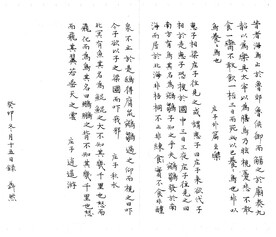 昔者海鳥止於魯郊魯侯御而觴之於廟奏九
韶以為樂具太牢以為膳鳥乃眩視憂悲不敢
食一臠不敢飲一杯三日而死此以己養養鳥也非以
鳥養養鳥也
莊子外篇至樂
惠子相梁莊子往見之或謂惠子曰莊子來欲代子
相於是惠子恐搜於國中三日三夜莊子往見之曰
南方有鳥其名為鵷鶵子知之乎夫鵷鶵發於南
海而飛於北海非梧桐不止非練實不食非醴
泉不飲於是鴟得腐鼠鵷鶵過之仰而視之曰嚇
今子欲以子之梁國而嚇我邪
莊子 秋水
北冥有魚其名為鯤鯤之大不知其幾千里也
化而為鳥其名為鵬鵬之背不知其幾千里也怒
而飛其翼若垂天之雲
莊子 逍遙遊
癸卯冬月十五日錄